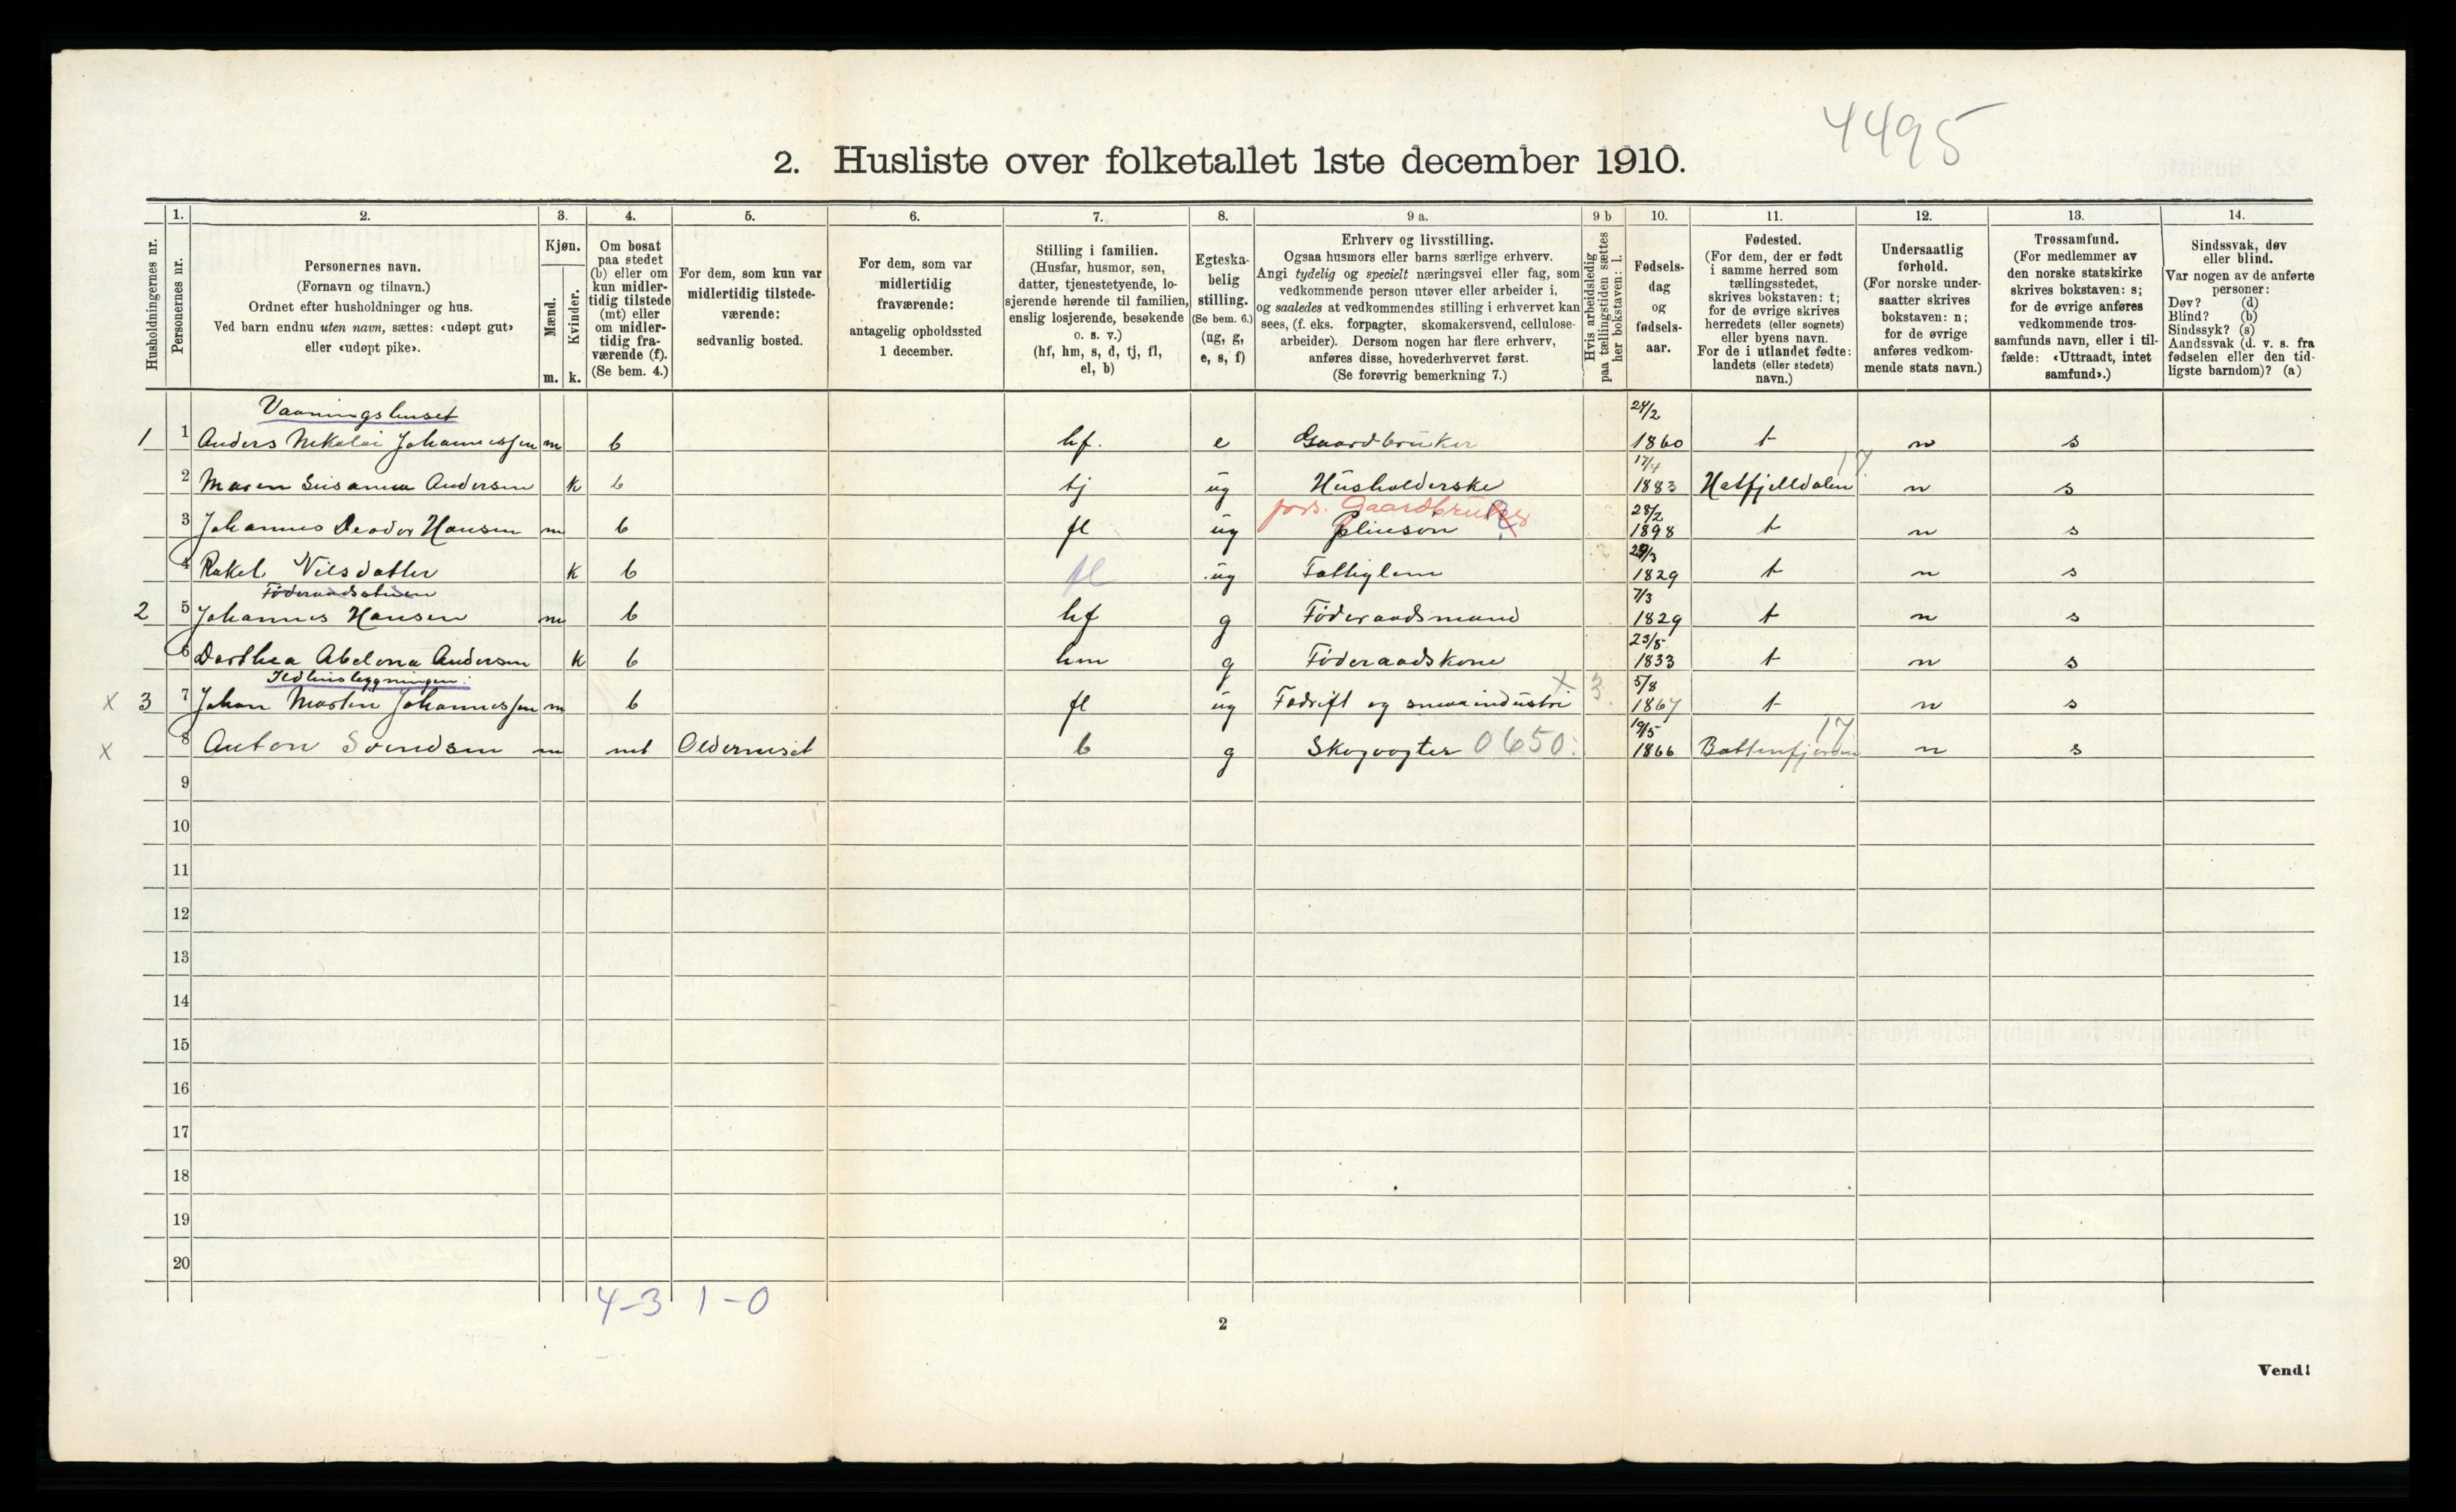 4495
2. Husliste over folketallet 1ste december 1910.
Husholdningernes nr.
1.
Personernes nr.
2.
Personernes navn.
(Fornavn og tilnavn.)
Ordnet efter husholdninger og hus.
Ved barn endnu uten navn, sættes: «udøpt gut»
eller «udøpt pike».
3.
Kjøn.
Mænd.
Kvinder.
m. k.
4.
Om bosat
paa stedet
(b) eller om
kun midler-
tidig tilstede
(mt) eller
om midler-
tidig fra-
værende (f).
(Se bem. 4.)
5.
For dem, som kun var
midlertidig tilstede-
værende:
sedvanlig bosted.
6.
For dem, som var
midlertidig
fraværende:
antagelig opholdssted
1 december.
7.
Stilling i familien.
(Husfar, husmor, søn,
datter, tjenestetyende, lo-
sjerende hørende til familien,
enslig losjerende, besøkende
o. s. v.)
(hf, hm, s, d, tj, fl,
el, b)
8.
Egteska-
belig
stilling.
(Se bem. 6.)
(ug, g,
e, s, f)
9 a.
Erhverv og livsstilling.
Ogsaa husmors eller barns særlige erhverv.
Angi tydelig og specielt næringsvei eller fag, som
vedkommende person utøver eller arbeider i,
og saaledes at vedkommendes stilling i erhvervet kan
sees, (f. eks. forpagter, skomakersvend, cellulose-
arbeider). Dersom nogen har flere erhverv,
anføres disse, hovederhvervet først.
(Se forøvrig bemerkning 7.)
9 b
Hvis arbeidsledig
paa tællingstiden sættes
her bokstaven: l.
10.
Fødsels-
dag
og
fødsels-
aar.
11.
Fødested.
(For dem, der er født
i samme herred som
tællingsstedet,
skrives bokstaven: t;
for de øvrige skrives
herredets (eller sognets)
eller byens navn.
For de i utlandet fødte:
landets (eller stedets)
navn.)
12.
Undersaatlig
forhold.
(For norske under-
saatter skrives
bokstaven: n;
for de øvrige
anføres vedkom-
mende stats navn.)
13.
Trossamfund.
(For medlemmer av
den norske statskirke
skrives bokstaven: s;
for de øvrige anføres
vedkommende tros-
samfunds navn, eller i til-
fælde: «Uttraadt, intet
samfund».)
14.
Sindssvak, døv
eller blind.
Var nogen av de anførte
personer:
Døv? (d)
Blind? (b)
Sindssyk? (s)
Aandssvak (d. v. s. fra
fødselen eller den tid-
ligste barndom)? (a)
Vaaningshuset
1 1 Anders Nikolai Johannessen m b hf. e Gaardbruker 24/2 1860 t n s
17
2 Maren Susanna Andersen k b tj ug Husholderske 17/4 1883 Hatfjelldalen n s
fors. Gaardbruker
3 Johannes Peder Hansen m b fl ug Pleiesøn 28/2 1898 t n s
4 Rakel Nilsdatter k b fl ug Fattiglem 29/3 1829 t n s
Føderaadsstuen
2 5 Johannes Hansen m b hf g Føderaadsmand 7/3 1829 t n s
6 Dorthea Abelona Andersen k b hm g Føderaadskone 23/5 1833 t n s
Ildhusbygningen:
x 3 7 Johan Martin Johannessen m b fl ug Fædrift og smaaindustri x 3 5/8 1867 t n s
17
x 8 Anton Svendsen m mt Olderneset b g Skogvogter 0650. 19/5 1866 Bottenfjorden n s
9
10
11
12
13
14
15
16
17
18
19
20
4-3 1-0
2
Vend!